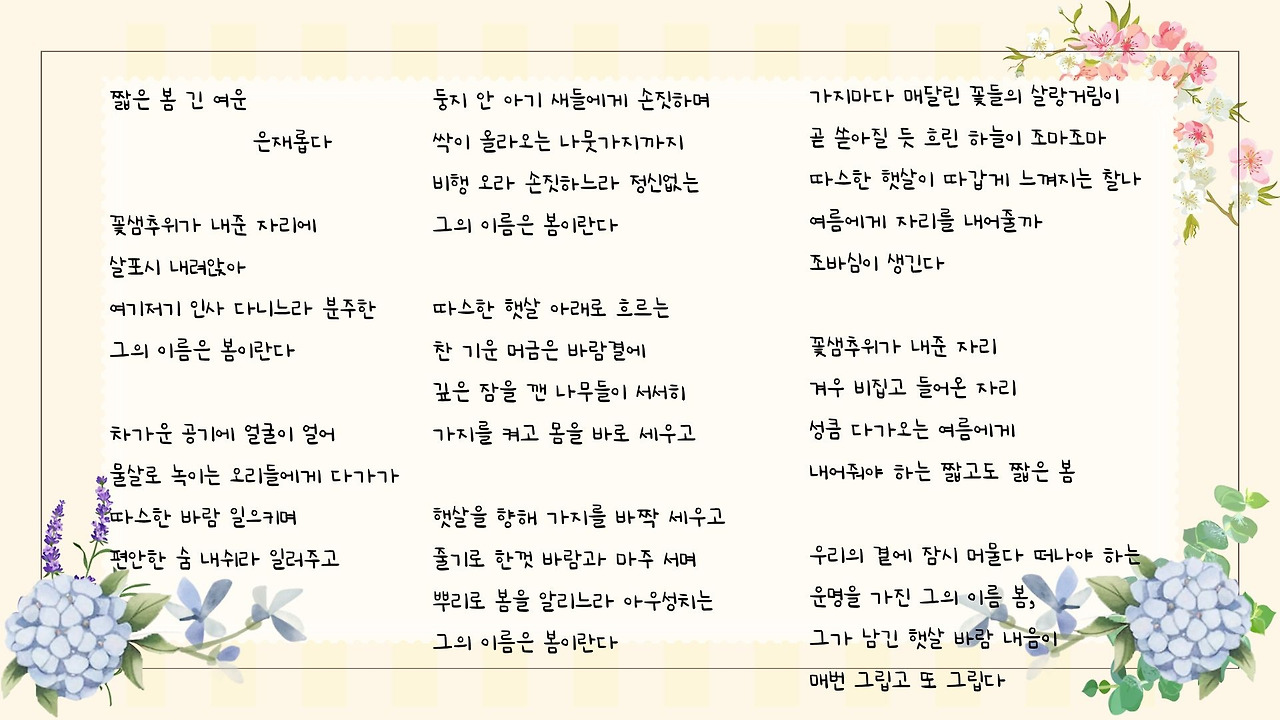 짧은 봄 긴 여운
은재롭다
꽃샘추위가 내준 자리에
살포시 내려앉아
여기저기 인사 다니느라 분주한
그의 이름은 봄이란다
차가운 공기에 얼굴이 얼어
물살로 녹이는 오리들에게 다가가
따스한 바람 일으키며
편안한 숨 내쉬라 일러주고
둥지 안 아기 새들에게 손짓하며
싹이 올라오는 나뭇가지까지
비행 오라 손짓하느라 정신없는
그의 이름은 봄이란다
따스한 햇살 아래로 흐르는
찬 기운 머금은 바람결에
깊은 잠을 깬 나무들이 서서히
가지를 켜고 몸을 바로 세우고
햇살을 향해 가지를 바짝 세우고
줄기로 한껏 바람과 마주 서며
뿌리로 봄을 알리느라 아우성치는
그의 이름은 봄이란다
가지마다 매달린 꽃들의 살랑거림이
곧 쏟아질 듯 흐린 하늘이 조마조마
따스한 햇살이 따갑게 느껴지는 찰나
여름에게 자리를 내어줄까
조바심이 생긴다
꽃샘추위가 내준 자리
겨우 비집고 들어온 자리
성큼 다가오는 여름에게
내어줘야 하는 짧고도 짧은 봄
우리의 곁에 잠시 머물다 떠나야 하는
운명을 가진 그의 이름 봄,
그가 남긴 햇살 바람 내음이
매번 그립고 또 그립다